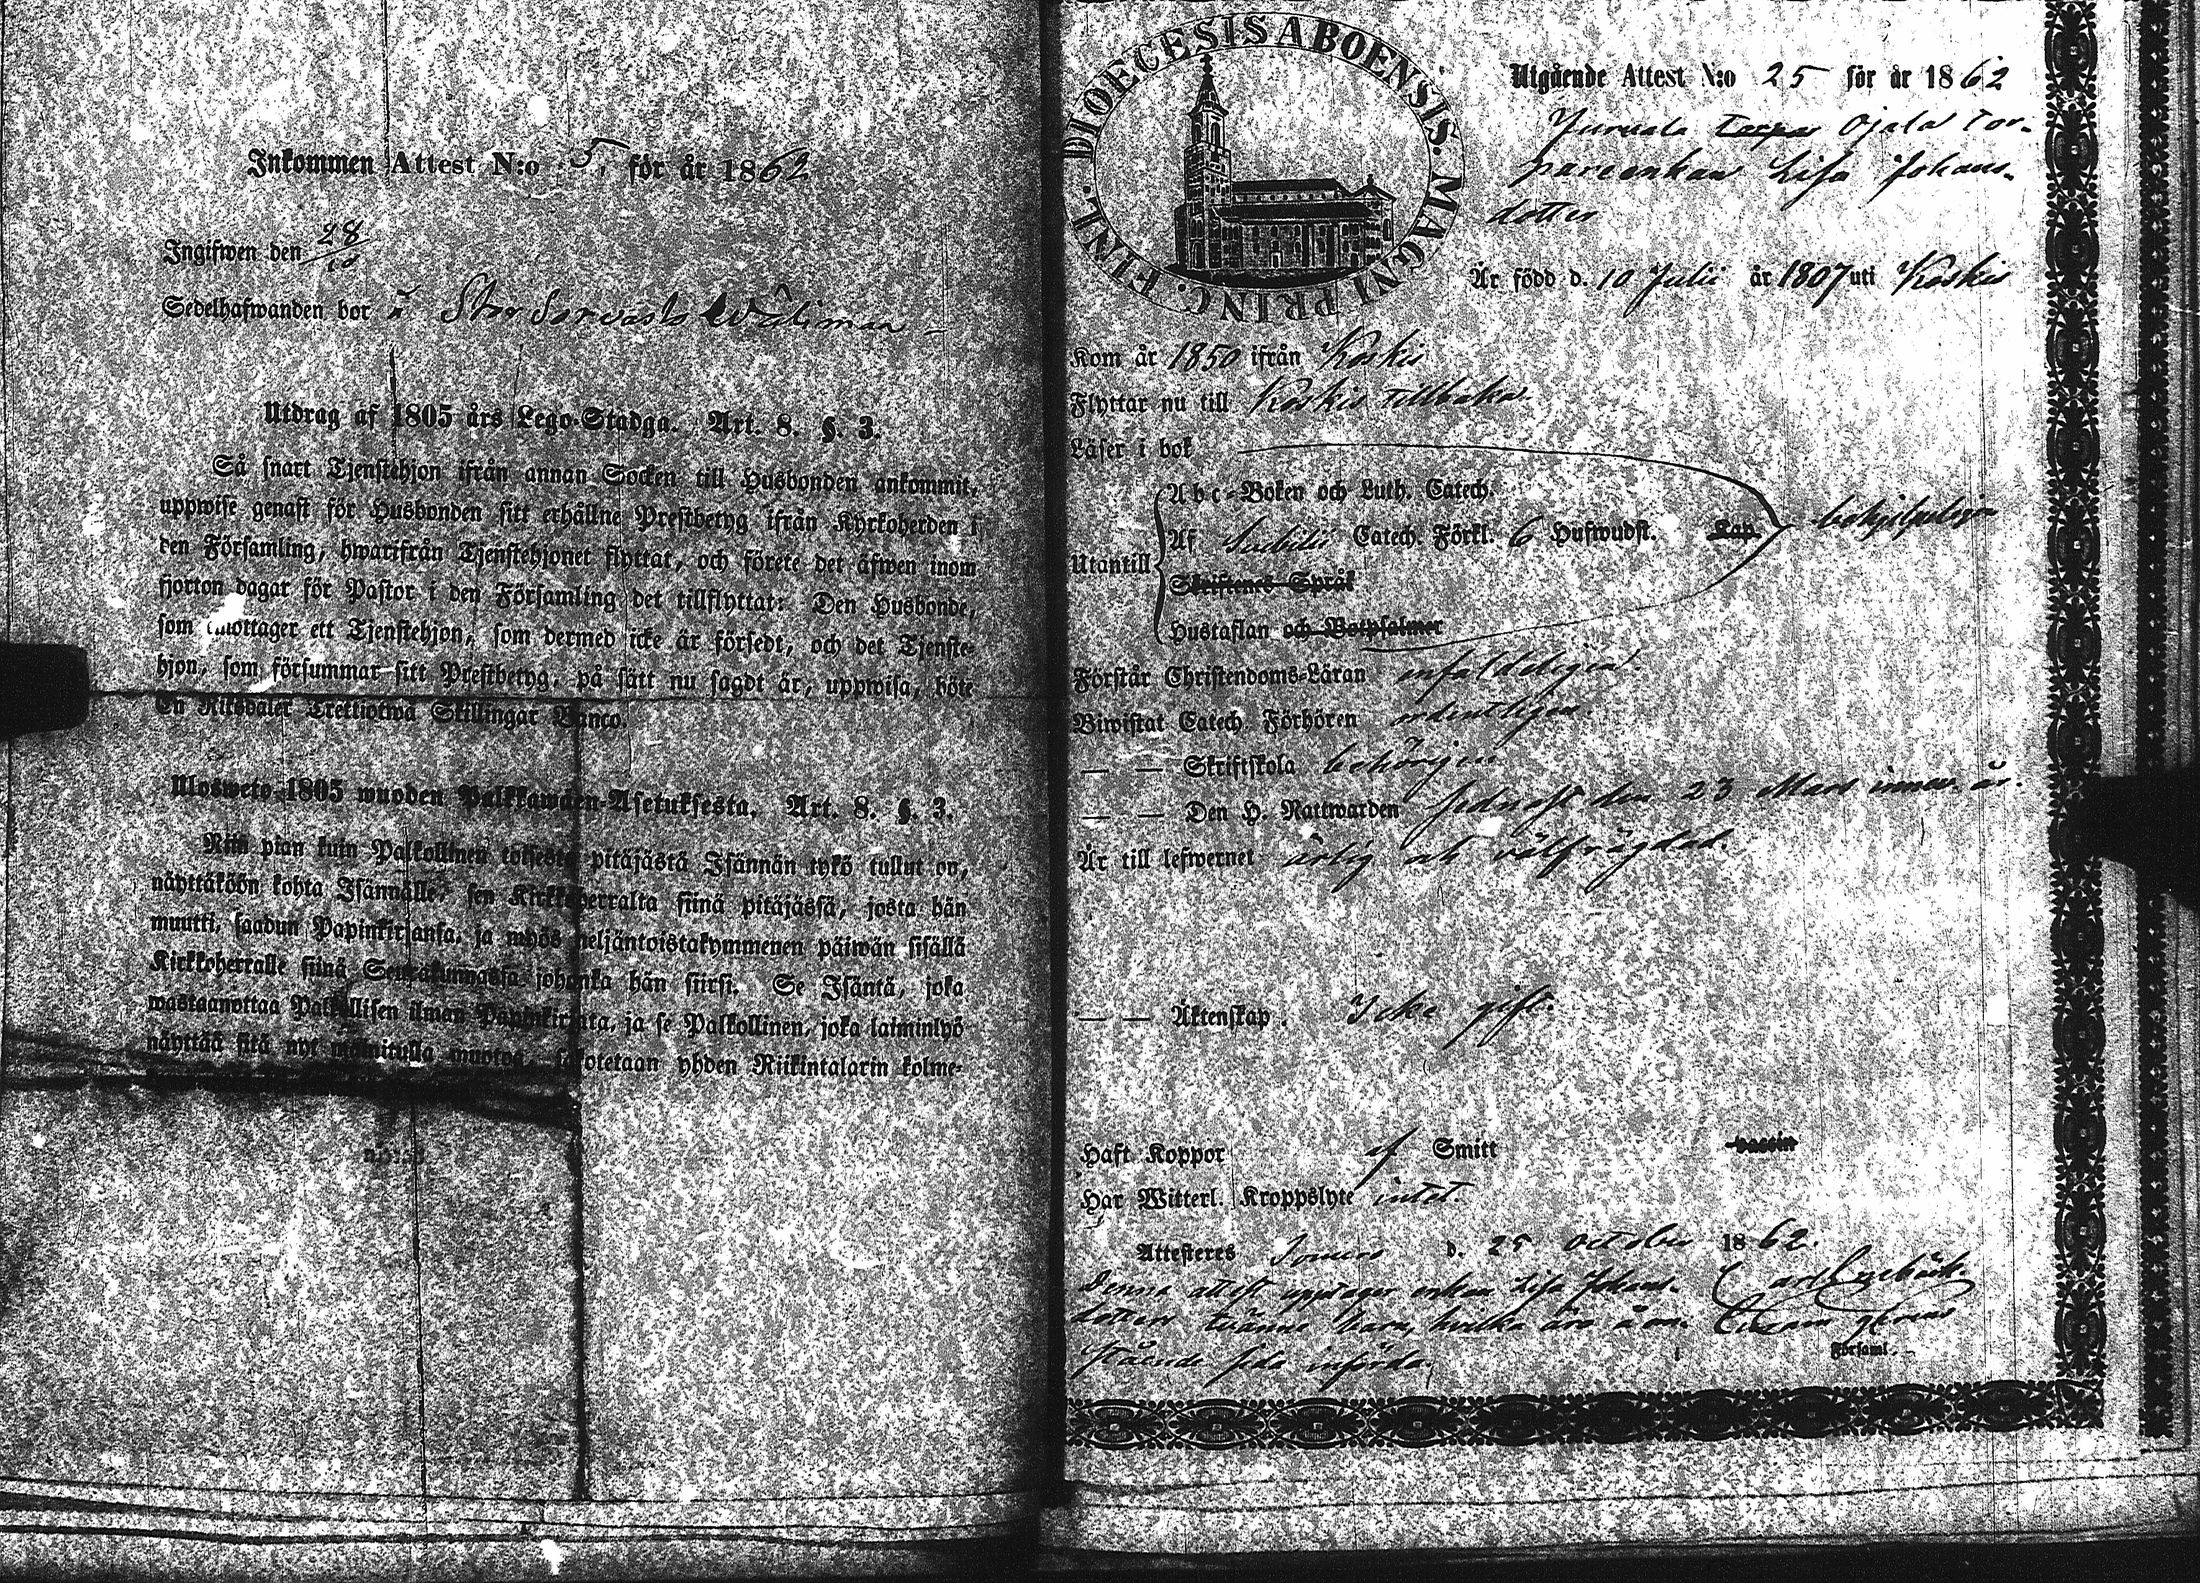 Inkommen Attest N:o 5, för år 1862
Ingifwen den 28/10
Sedelhafwanden bor i Stor Sorvasto
Utdrag af 1805 års Lego-Stadga. Art. 8. §. 3.
Så snart Tjenstehjon ifrån annan Socken till Husbonden ankommit,
uppwise genast för Husbonden sitt erhållne Prestbetyg ifrån Kyrkoherden i
den Församling, hwarifrån Tjenstehjonet flyttat, och förete det äfwen inom
fjorton dagar för Pastor i den Församling det tillflyttat: Den Husbonde,
som emottager ett Tjenstehjon, som dermed icke är försedt, och det Tjenste-
hjon, som försummar sitt Prestbetyg, på sätt nu sagdt är, uppwisa, böte
En Riksdaler Trettiotwå Skillingar Banco.
Ulosweto 1805 wuoden Palkkawäen-Asetuksesta. Art. 8. §. 3.
Niin pian kuin Palkollinen toisesta pitäjästä Isännän tykö tullut on,
näyttäköön kohta Isännälle, sen Kirkkoherralta siinä pitäjässä, josta hän
muutti, saadun Papinkirjansa, ja myös neljäntoistakymmenen päiwän sisällä
Kirkkoherralle siinä Seurakunnassa johonka hän siirsi. Se Isäntä, joka
wastaanottaa Palkollisen ilman Papinkirjata, ja se Palkollinen, joka laiminlyö
näyttää sitä nyt mainitulla muotoa, sakotetaan yhden Riikintalarin kolme-
DIOECESIS ABOENSIS. MAGNI PRINC. FINL.
Utgående Attest N:o 25 för år 1862
Jurvala Torpar Ojala Tor-
pareenkan Lisa Johans-
dotter
Är född d. 10 Julii år 1807 uti Koskis
Kom år 1850 ifrån Koskis
Flyttar nu till Koskis tillbaka.
Läser i bok
Abc-Boken och Luth. Catech.
Utantill Af Svebilii Catech. Förkl. 6 Hufwudst. Kap. behjelpeligen
Skriftenes Språk
Hustaflan och Botpsalmer
Förstår Christendoms-Läran enfaldeligen
Biwistat Catech. Förhören ordentligen.
— — Skriftskola behörigen
— — Den H. Nattwarden sednast den 23 Mars innev. år.
Är till lefwernet ärlig och välfrägdad.
— — Äktenskap. Icke gift.
Haft Koppor af Smitt vaccin
Har Witterl. Kroppslyte intet.
Attesteres Somero d. 25 October 1862.
Denna attest upptager enkan Lisa Johans-
dotters tvänne barn, hvilka äro å om-
stående sida införda.
Församl.